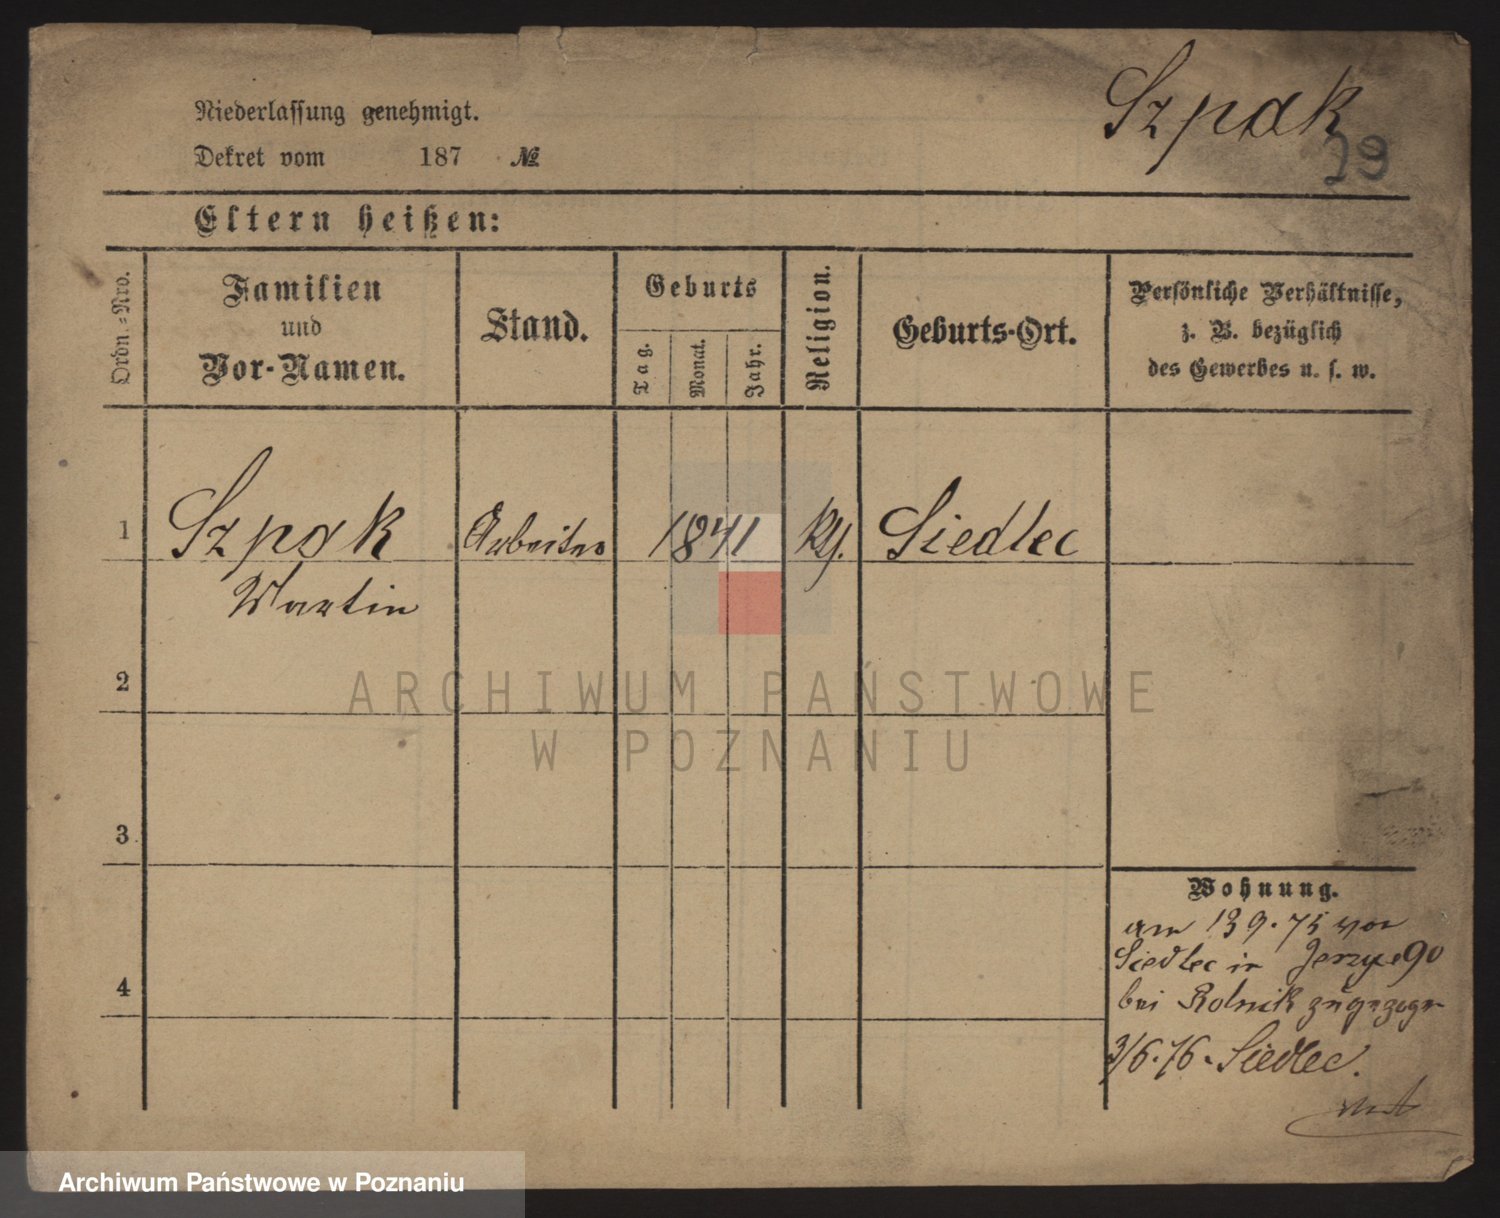 Szpak
29
Niederlassung genehmigt.
Dekret vom 187 №
Eltern heißen:
Ordn.-Nro.
Familien
und
Vor-Namen.
Stand.
Geburts
Tag.
Monat.
Jahr.
Religion.
Geburts-Ort.
Persönliche Verhältnisse,
z. B. bezüglich
des Gewerbes u. s. w.
1 Szpak Arbeiter 1841 Siedlec
Martin
2
3
4
Wohnung.
am 13 9. 75 von
Siedlec in Jerzyce 90
bei Rolnik zugezogen
3/6.76. Siedlec.
ARCHIWUM PAŃSTWOWE
W POZNANIU
Archiwum Państwowe w Poznaniu